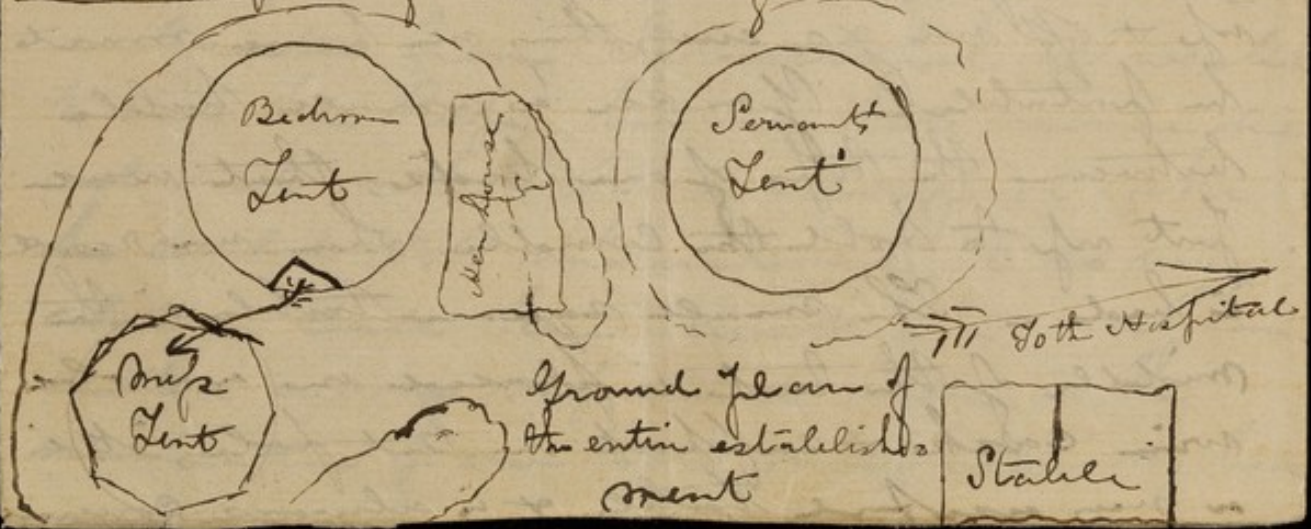 Bedroom
Tent
Hen house
Servants'
Tent
Mess
Tent
To the Hospital
Ground plan of
the entire establish=
ment
Stable